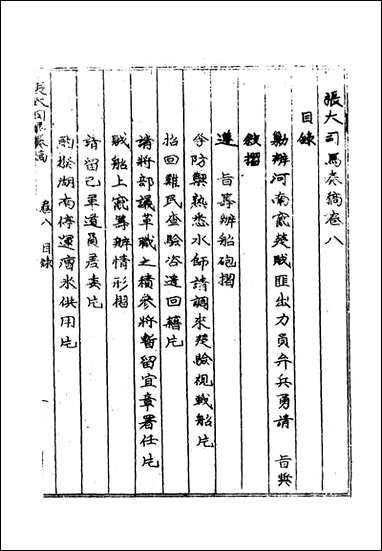 張大司馬奏稿卷八
目錄
勦辦河南竄楚賊匪出力員弁兵勇請 旨奬
敘摺
遵 旨籌辦船砲摺
李防禦熟悉水師請調來楚驗視戰船片
招回難民查驗咨遣回籍片
請將部議革職之積參將暫留宜章署任片
賊船上竄籌辦情形摺
請留已革道員差委片
酌撥湖南停運漕米供用片
張大司馬奏稿 卷八 目錄 一